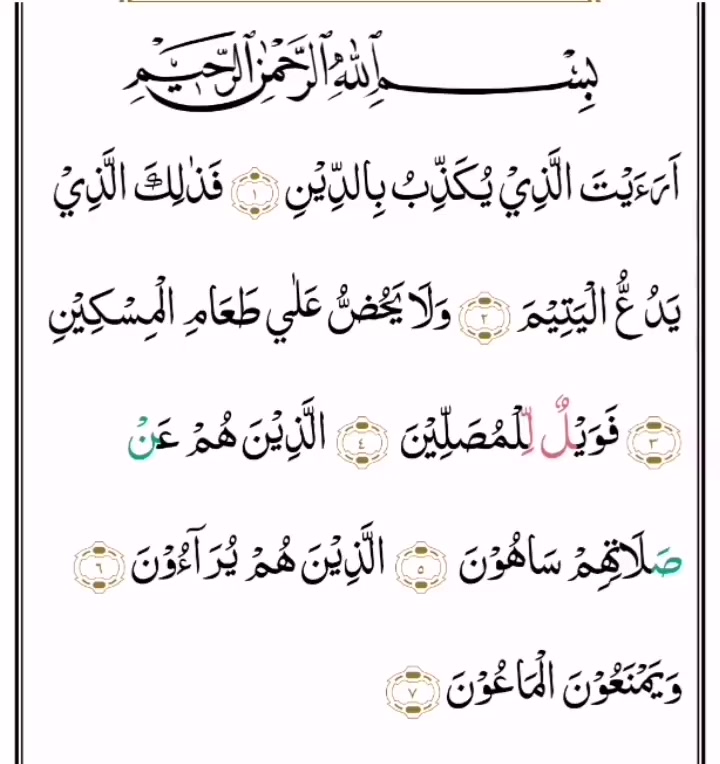 بِسْمِ اللهِ الرَّحْمٰنِ الرَّحِيْمِ
اَرَءَيْتَ الَّذِيْ يُكَذِّبُ بِالدِّيْنِ ١ فَذٰلِكَ الَّذِيْ
يَدُعُّ الْيَتِيْمَ ٢ وَلَا يَحُضُّ عَلٰي طَعَامِ الْمِسْكِيْنِ
٣ فَوَيْلٌ لِّلْمُصَلِّيْنَ ٤ الَّذِيْنَ هُمْ عَنْ
صَلَاتِهِمْ سَاهُوْنَ ٥ الَّذِيْنَ هُمْ يُرَآءُوْنَ ٦
وَيَمْنَعُوْنَ الْمَاعُوْنَ ٧